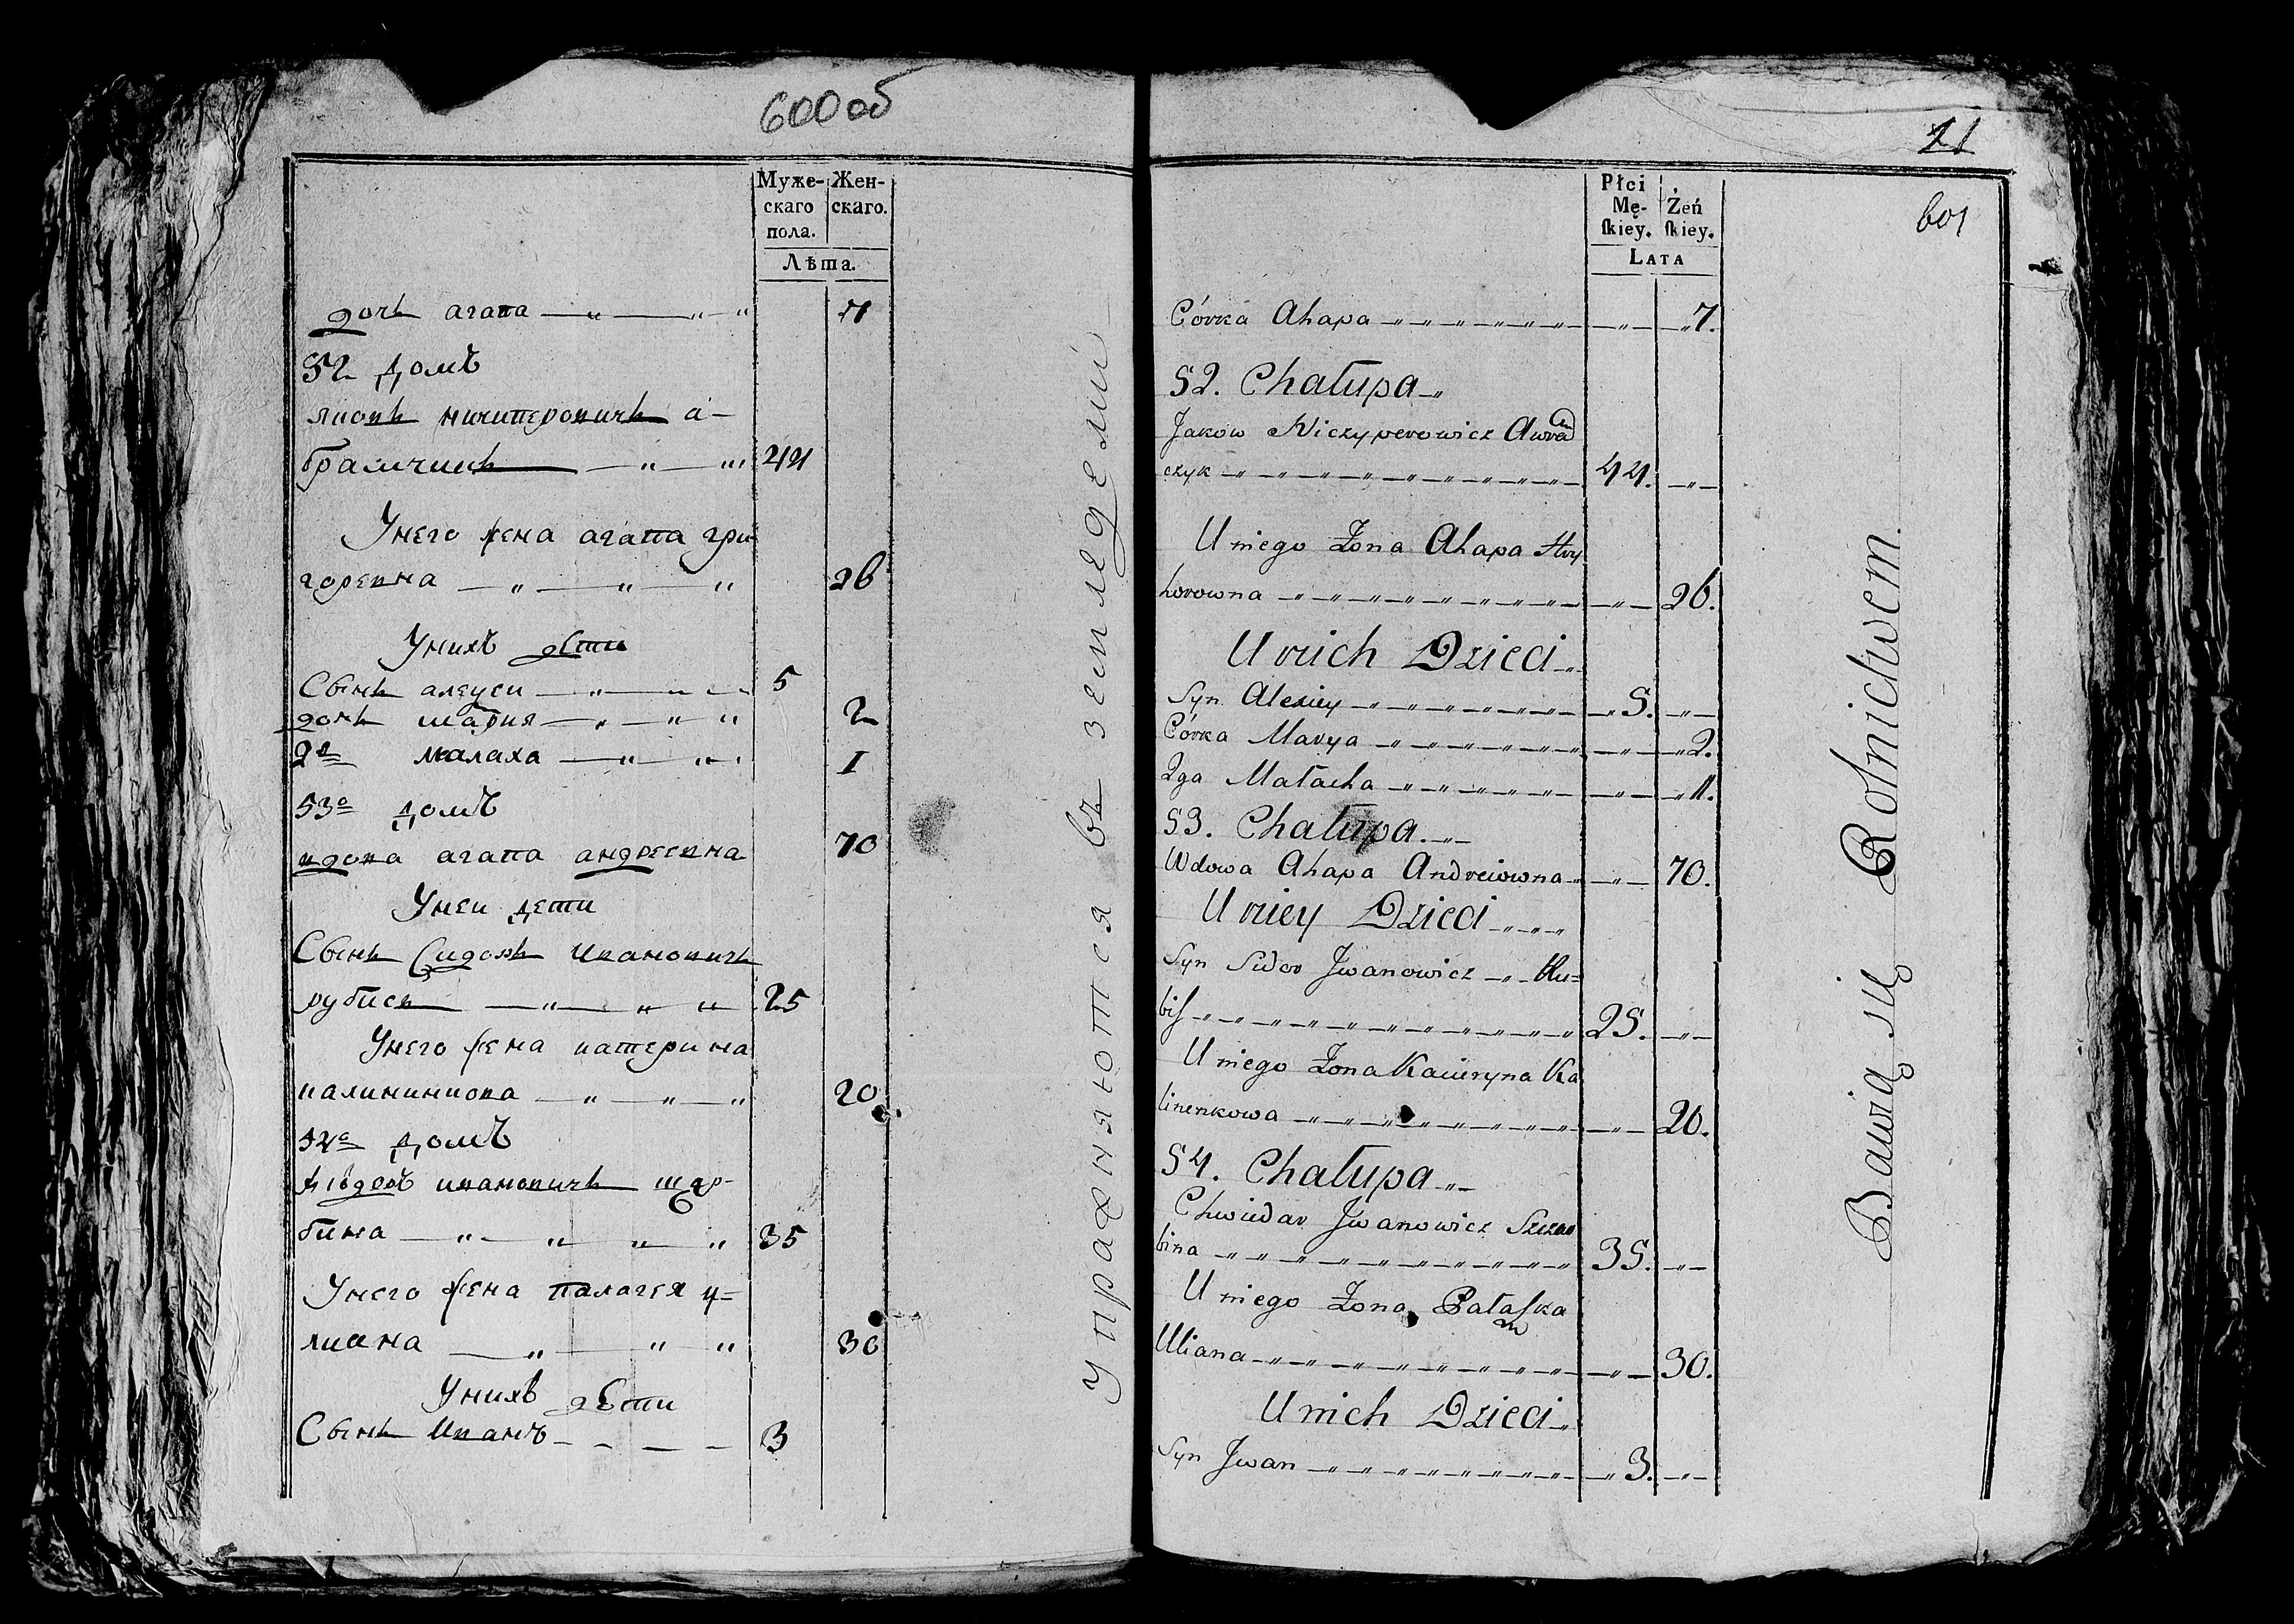 600 об
Муже-
скаго
пола.
Жен-
скаго.
Лѣта.
дочь агапа — „ — „ „ 7
52 домъ
яковъ ничипоровичъ а-
брамчикъ — „ — „ 44
Унего жена агапа гри
горевна — „ — „ — „ 26
Унихъ дѣти
Сынъ алеуси — „ — „ 5
дочь мария — „ — „ „ 2
2я малаха — „ „ 1
53а домъ
вдова агапа андреевна 70
Унеи дети
Сынъ Сидоръ Ивановичъ
рубисъ — „ — „ „ 25
Унего жена катерина
калининкова — „ — „ — „ 20
54а домъ
ивановичъ щар-
бина — „ — „ „ „ 35
Унего жена палагея у=
лиана — „ — „ „ 30
Унихъ дѣти
Сынъ Иванъ - - — — 3
упражняются въ земледелии
11
601
Płci
Mę-
skiey.
Żeń
skiey.
Lata
Córka Ahapa — „ — „ — 7.
52. Chałupa „
Jakow Niczyperowicz Awra
czyk — „ — „ — 44.
U niego Żona Ahapa Hry
horowna — „ — „ — 26.
U nich Dzieci „
Syn Alexiey — „ — „ — 5.
Córka Marya — „ — „ — 2.
2ga Małacha — „ — „ — 1.
53. Chałupa. „
Wdowa Ahapa Andreiowna „ — 70.
U niey Dzieci „ „
Syn Sidor Jwanowicz „ Hu=
biſ — „ — „ — 25.
U niego Żona Kacieryna Ka
linenkowa — „ — „ — 20.
54. Chałupa „
Chwiedar Jwanowicz Szczar
bina — „ — „ — 35.
U niego Żona Pałaſka
Uliana — „ — „ — 30.
U nich Dzieci „
Syn Jwan — „ — „ — 3.
Bawią się Rolnictwem.